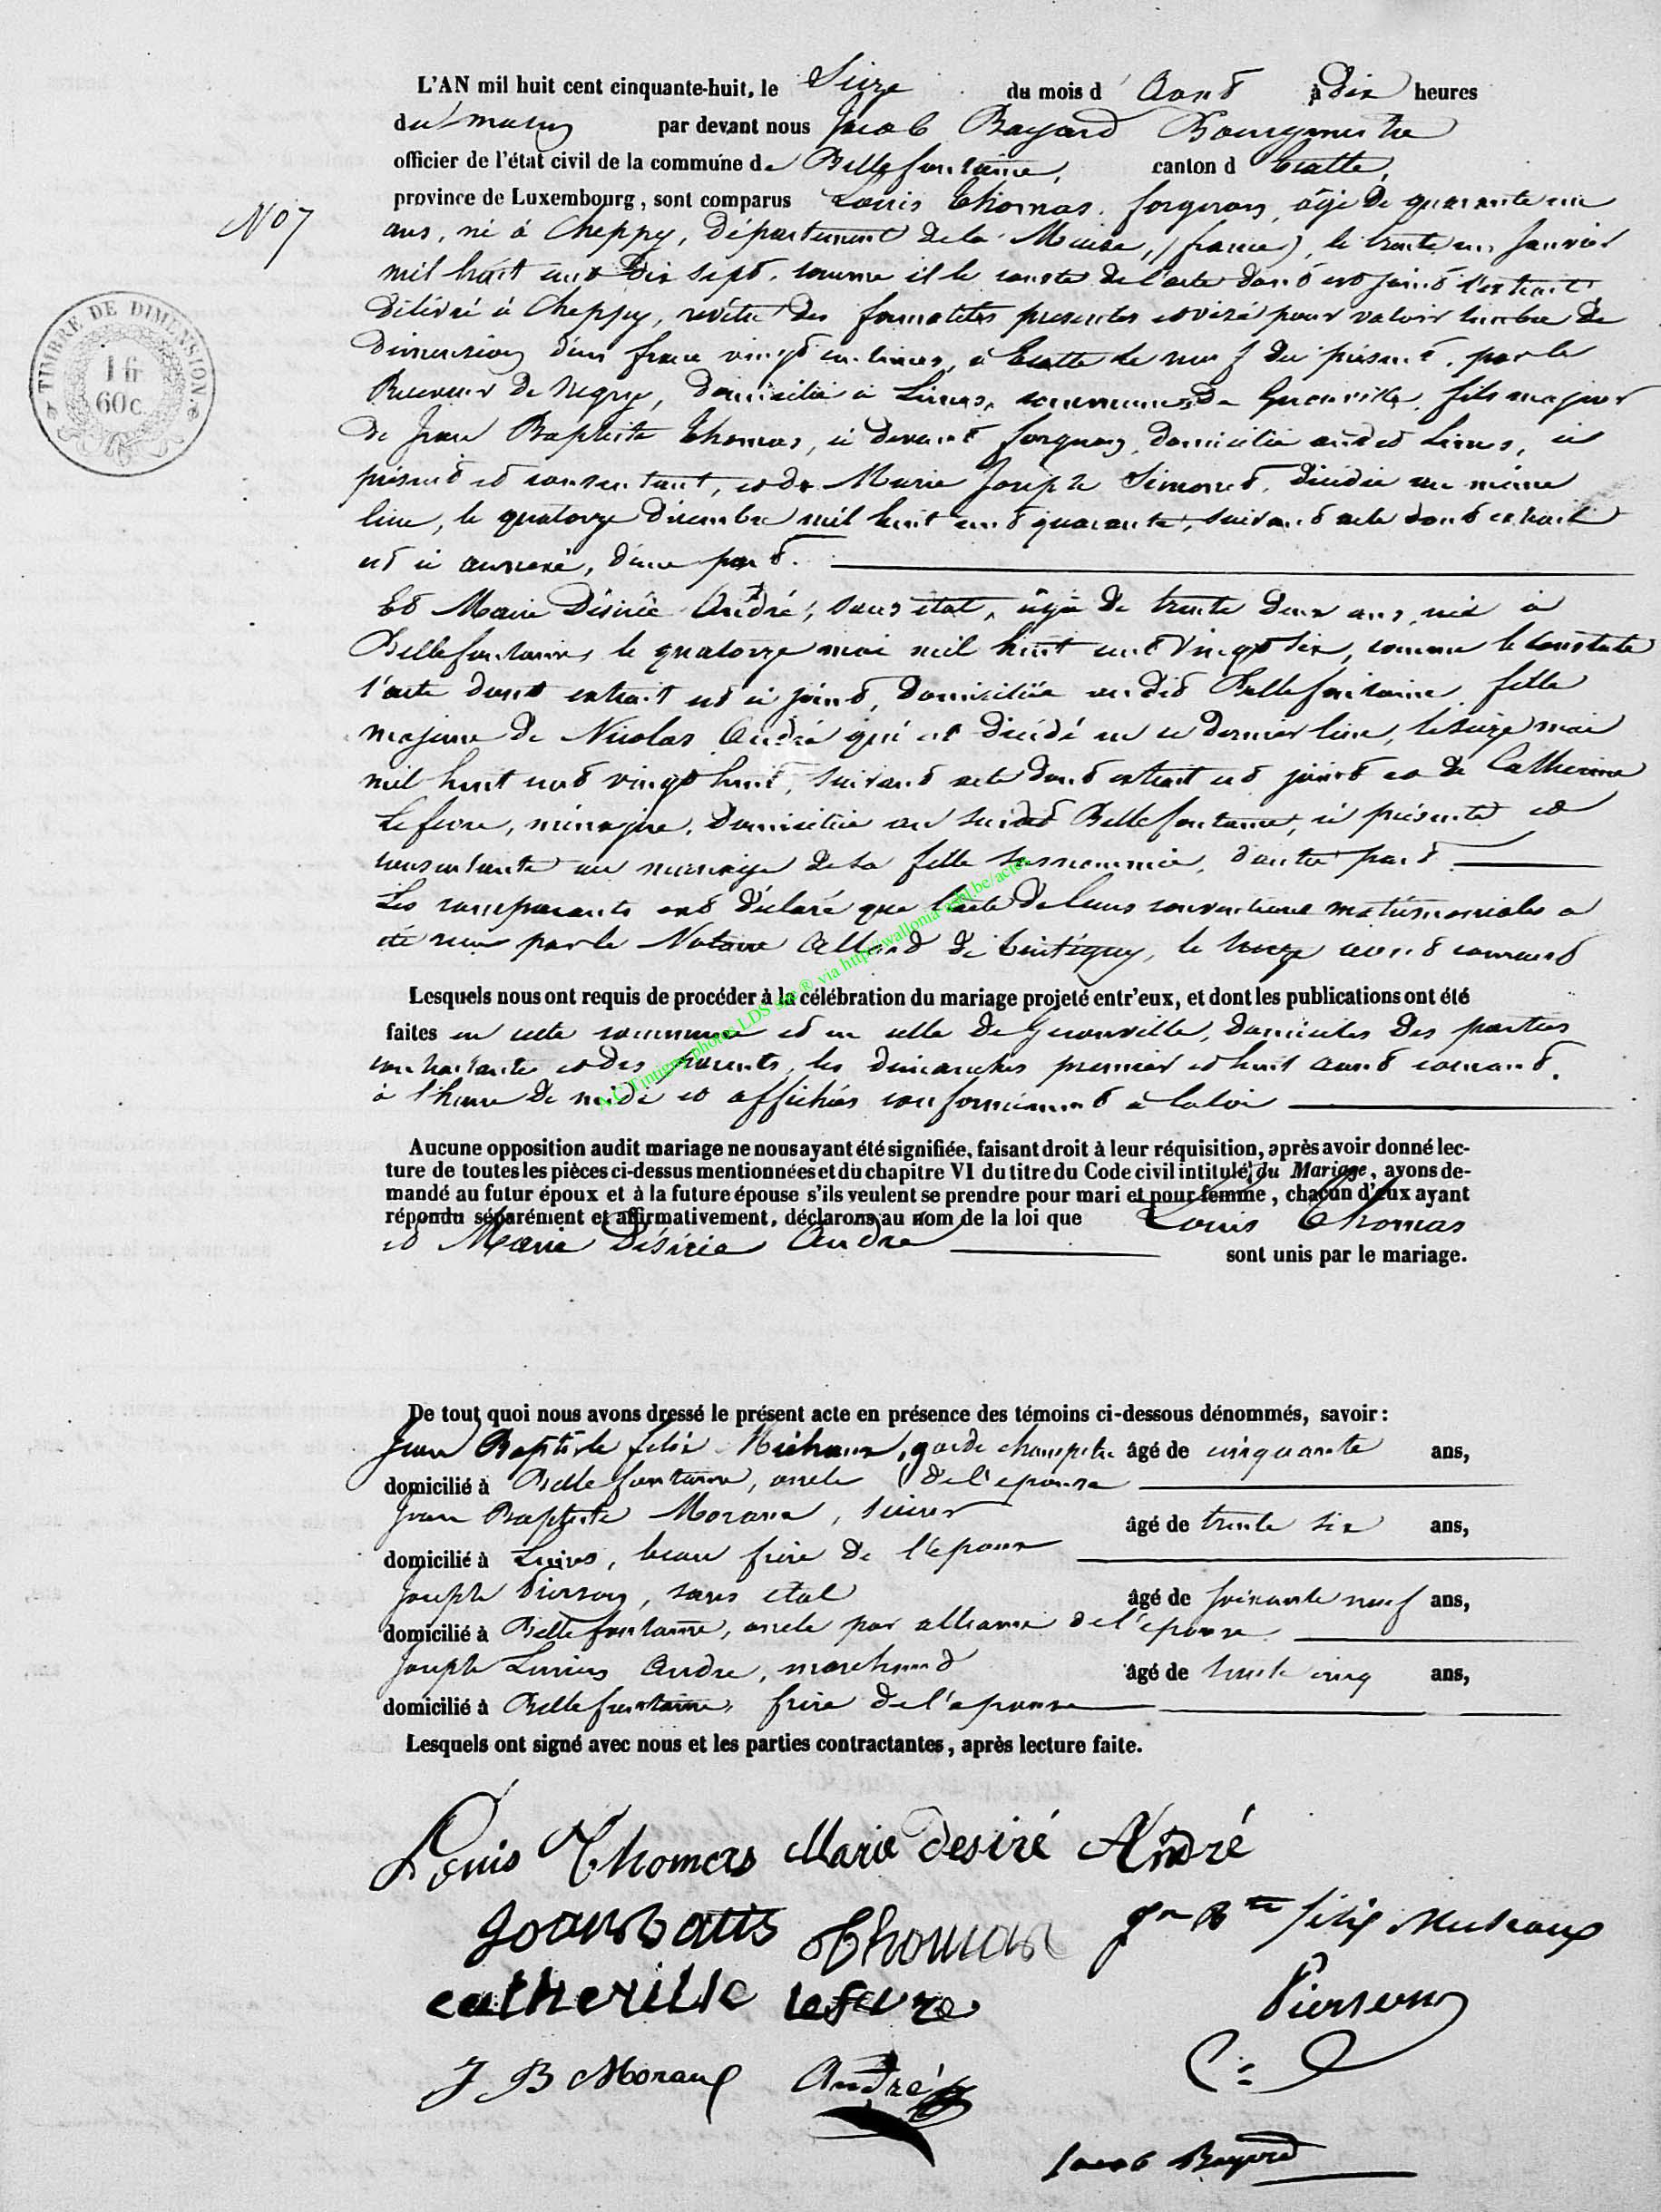 L'AN mil huit cent cinquante-huit, le Seize du mois d' Aout à Dix heures
du matin par devant nous Jacob Bayard Bourgmestre
officier de l'état civil de la commune de Bellefontaine, canton d' Etalle,
province de Luxembourg, sont comparus Louis Thomas, forgeron, âgé de quarante un
No 7
ans, né à Cheppy, Département de la Meuse, (france), le trente un Janvier
mil huit cent Dix sept, comme il le conste de l'acte dont est joint l'extrait
délivré à Cheppy, revêtu des formalités et visé pour valoir timbre de
TIMBRE DE DIMENSION.
1 fr
60c.
Dimension d'un franc vingt centimes, à Etalle le neuf du présent, par le
Receveur domicilié à commune de Gerouville, fils majeur
de Jean Baptiste Thomas, ci devant forgeron, domicilié audit ici
présent et consentant, et de Marie Joseph Simonet, décédée au même
lieu, le quatorze Décembre mil huit cent quarante, suivant acte dont extrait
est ci annexé, d'une part.
Et Marie Désirée André, sans état, âgée de trente deux ans, née à
Bellefontaine, le quatorze mai mil huit cent vingt six, comme le constate
l'acte dont extrait est ci joint, domiciliée audit Bellefontaine, fille
majeure de Nicolas André qui est décédé en ce dernier lieu, le seize mai
mil huit cent vingt huit, suivant acte dont extrait est joint et de Catherine
Lefevre, ménagère, domiciliée au susdit Bellefontaine, ici présente et
consentante au mariage de sa fille susnommée, d'autre part.
Les comparants ont déclaré que l'acte de leurs conventions matrimoniales a
été reçu par le Notaire de Tintigny, le aout courant
Lesquels nous ont requis de procéder à la célébration du mariage projeté entr'eux, et dont les publications ont été
faites en cette commune et en celle de Gerouville, domiciles des parties
contractantes et des parents, les dimanches premier et huit aout courant,
à l'heure de midi et affichées conformément à la loi
A.C. Tintigny photos LDS site ® via http://wallonia-asbl.be/actes
Aucune opposition audit mariage ne nous ayant été signifiée, faisant droit à leur réquisition, après avoir donné lec-
ture de toutes les pièces ci-dessus mentionnées et du chapitre VI du titre du Code civil intitulé, du Mariage, ayons de-
mandé au futur époux et à la future épouse s'ils veulent se prendre pour mari et pour femme, chacun d'eux ayant
répondu séparément et affirmativement, déclarons au nom de la loi que Louis Thomas
et Marie Désirée André sont unis par le mariage.
De tout quoi nous avons dressé le présent acte en présence des témoins ci-dessous dénommés, savoir:
Jean Baptiste felix Michaux, garde champetre âgé de cinquante ans,
domicilié à Bellefontaine, oncle de l'epouse
Jean Baptiste Moraux, âgé de trente six ans,
domicilié à beau frère de l'epoux
Joseph Pierson, sans etat âgé de soixante neuf ans,
domicilié à Bellefontaine, oncle par alliance de l'epouse
Joseph André, marchand âgé de trente cinq ans,
domicilié à Bellefontaine, frère de l'epouse
Lesquels ont signé avec nous et les parties contractantes, après lecture faite.
Louis Thomas Marie Desiré André
Jean batis Thomas Jn Bte félix Michaux
catherine lefevre Pierson
J B Moraux André
Jacob Bayard